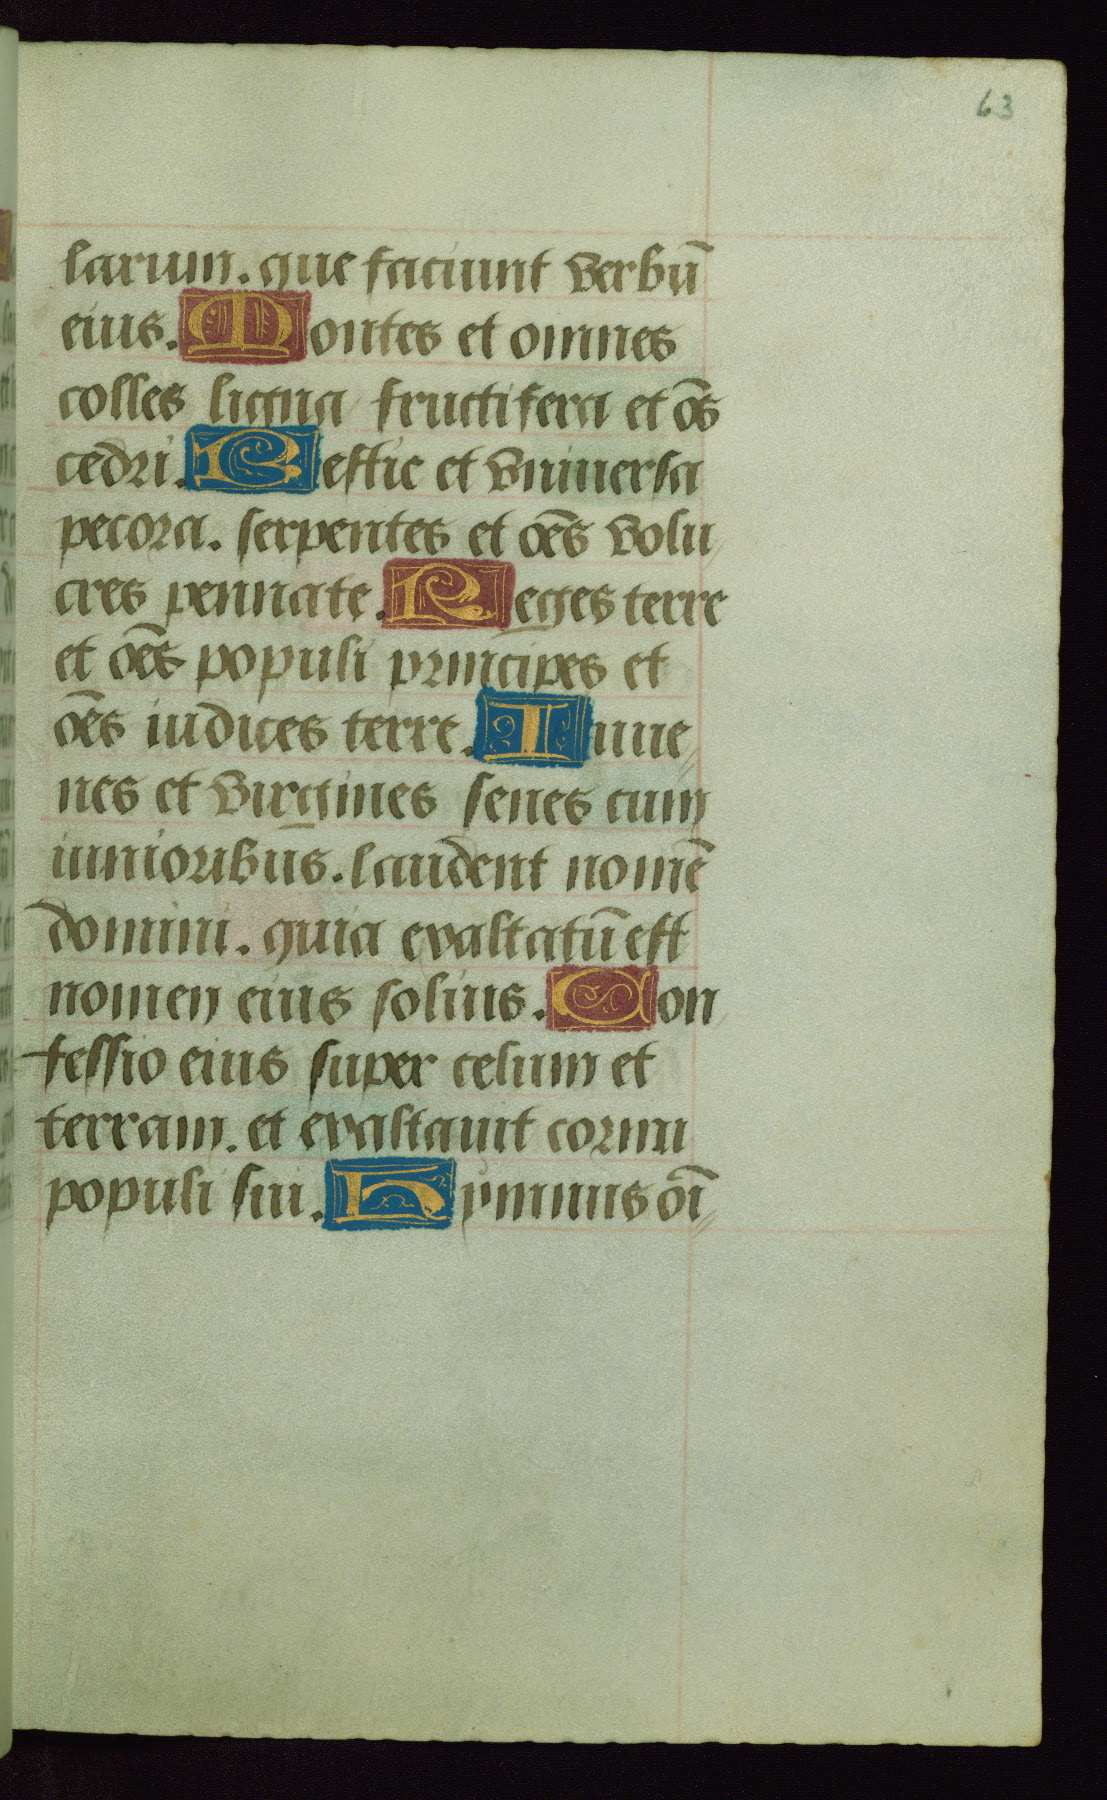 63
larum. que faciunt verbū
eius. Montes et omnes
colles ligna fructifera et oēs
cedri. Bestie et vniuersa
pecora. serpentes et oēs volu
cres pennate. Reges terre
et oēs populi principes et
oēs iudices terre. Iuue
nes et virgines senes cum
iunioribus. laudent nomē
domini. quia exaltatū est
nomen eius solius. Con
fessio eius super celum et
terram. et exaltauit cornu
populi sui. Hymnus oī